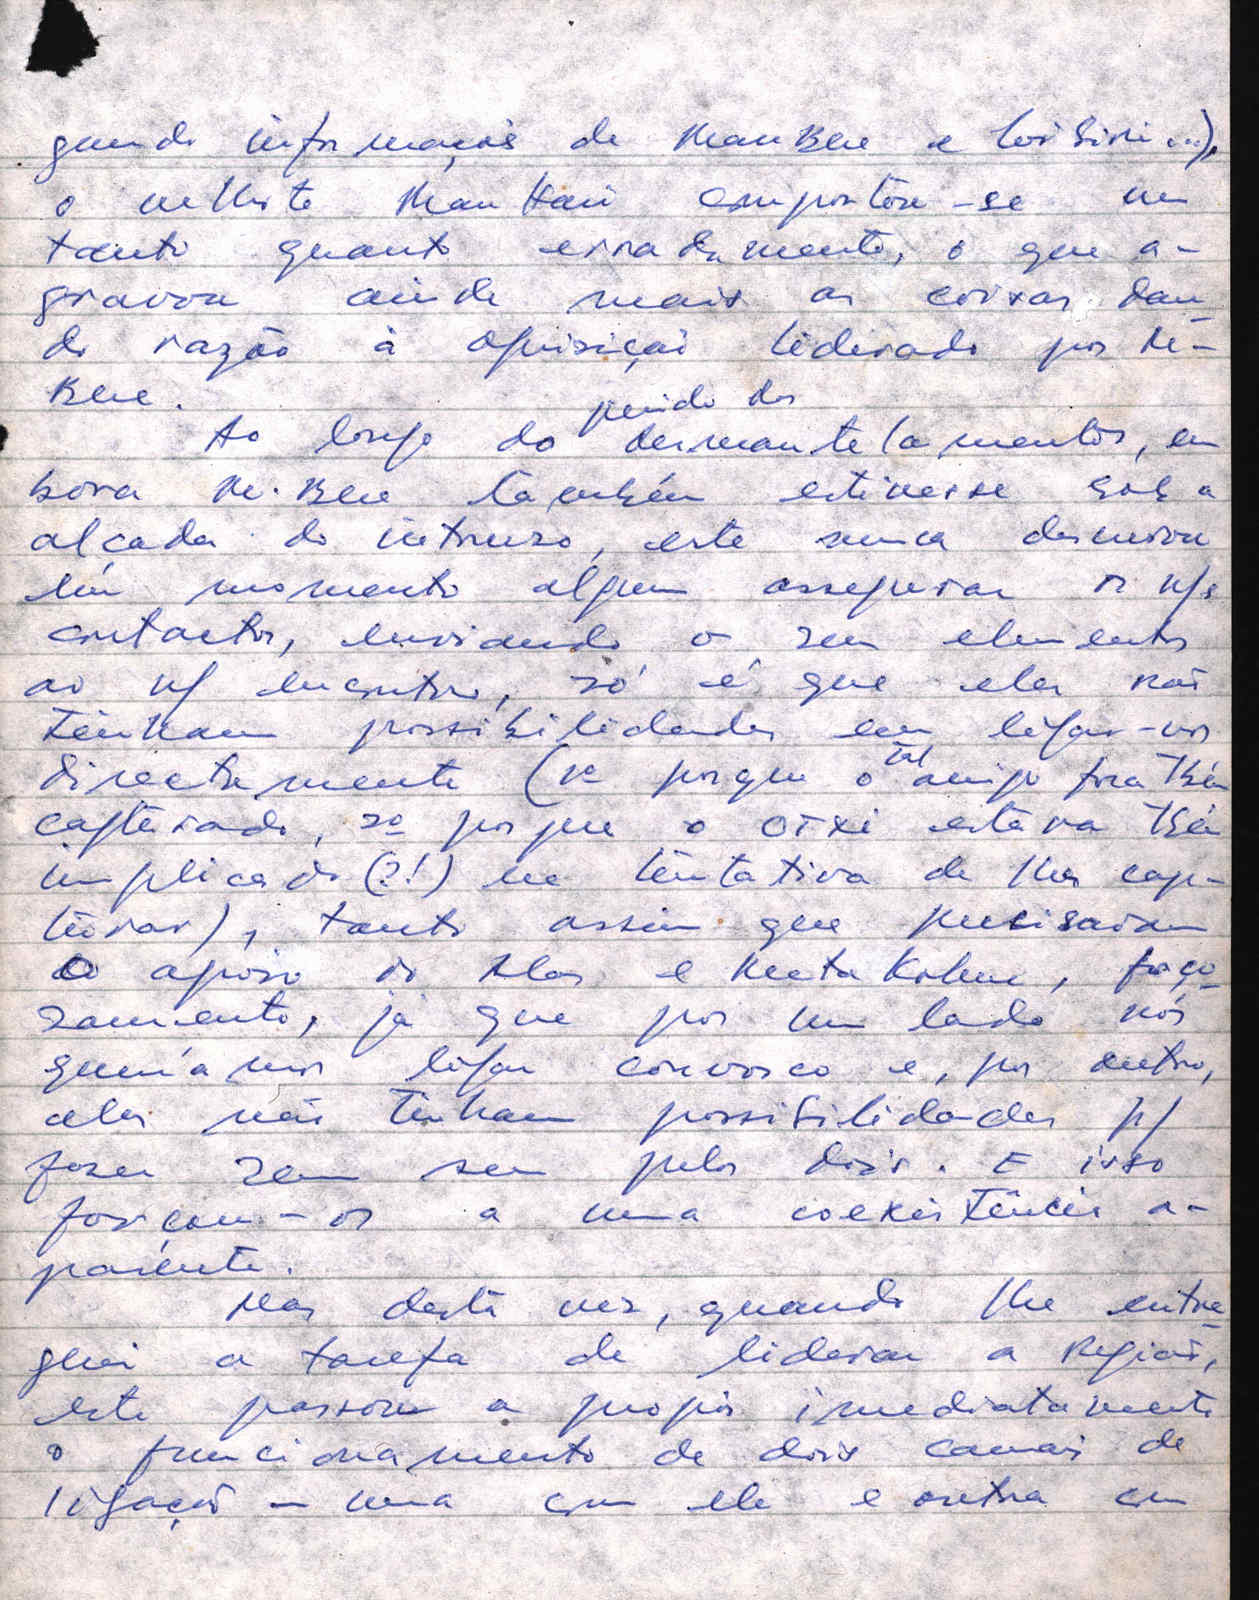 gundo informações de MauBere e Lorisori...),
o velhote MauHari comportou-se um
tanto quanto erradamente, o que a-
gravou ainda mais as coisas dan-
do razão à oposição liderado por M-
Bere.
período dos
Ao longo do desmantelamentos, em
bora M.Bere também estivesse sob a
alçada do intruso, este nunca desviou
em momento algum assegurar os n/s
contactos, enviando o seu elemento
ao n/ encontro, só é que eles não
tinham possibilidades em ligar-vos
tal
directamente (se porque o amigo fora tbém
capturado, só porque o OTXI estava tbém
implicado (?!) na tentativa de lhes cap-
turar), tanto assim que precisavam
o apoio do Mas e , força
zamente, já que por um lado nós
queríamos ligar convosco e, por outro,
eles não tinham possibilidades p/
fazer sem ser pelos dois. E isso
forçou-os a uma coexistência a-
parente.
Mas desta vez, quando lhe entre
guei a tarefa de liderar a Região,
este passou a propôr imediatamente
o funcionamento de dois canais de
ligação - uma com ele e outra com